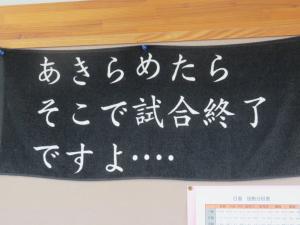 あきらめたら
そこで試合終了
ですよ‥‥